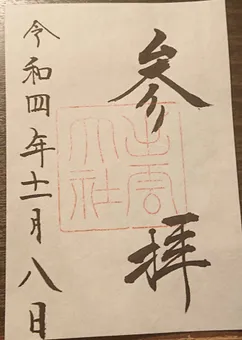 参拝
出雲
大社
令和四年十一月八日